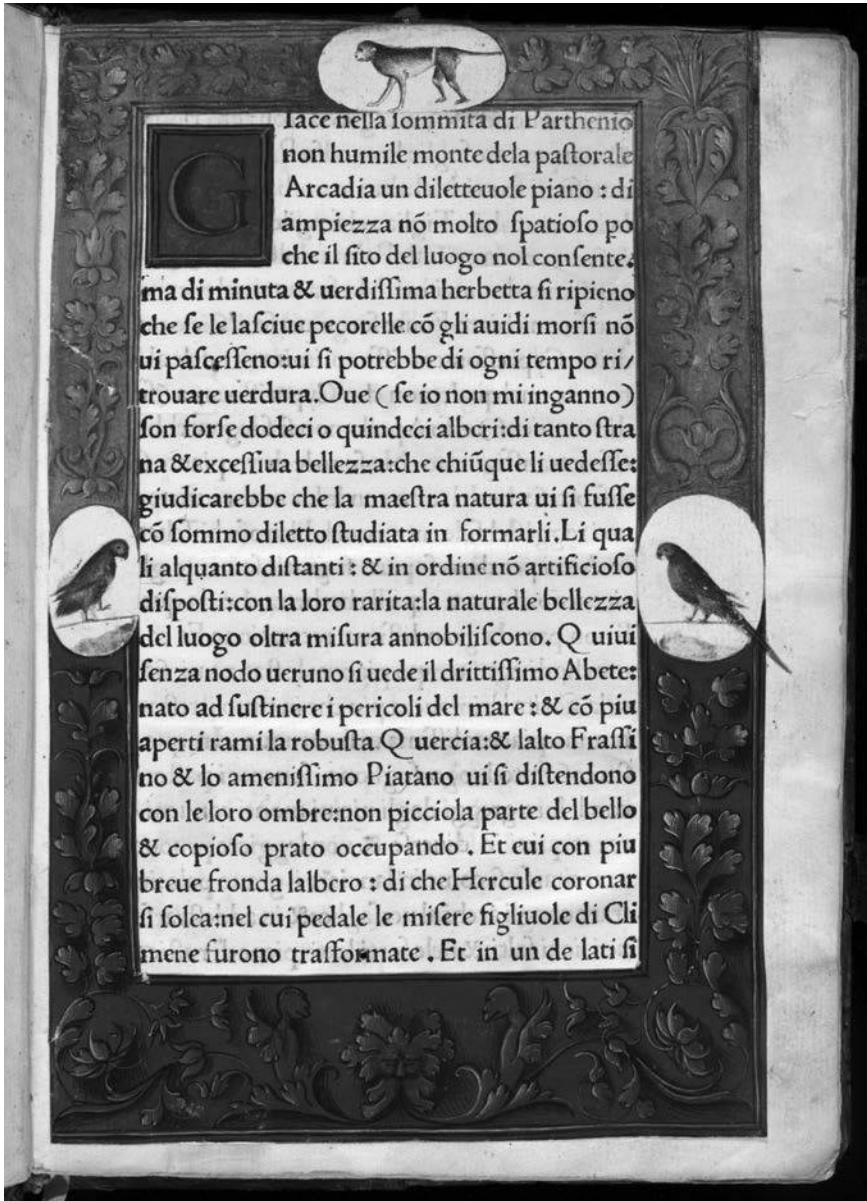 G
Iace nella ſommita di Parthenio
non humile monte dela paſtorale
Arcadia un diletteuole piano : di
ampiezza nõ molto ſpatioſo po
che il ſito del luogo nol conſente.
ma di minuta & uerdiſſima herbetta ſi ripieno
che ſe le laſciue pecorelle cõ gli auidi morſi nõ
ui paſceſſeno:ui ſi potrebbe di ogni tempo ri/
trouare uerdura.Oue ( ſe io non mi inganno)
ſon forſe dodeci o quindeci alberi:di tanto ſtra
na &exceſſiua bellezza:che chiũque li uedeſſe:
giudicarebbe che la maeſtra natura ui ſi fuſſe
cõ ſommo diletto ſtudiata in formarli.Li qua
li alquanto diſtanti : & in ordine nõ artificioſo
diſpoſti:con la loro rarita:la naturale bellezza
del luogo oltra miſura annobiliſcono. Q uiui
ſenza nodo ueruno ſi uede il drittiſſimo Abete:
nato ad ſuſtinere i pericoli del mare : & cõ piu
aperti rami la robuſta Q uercia:& lalto Fraſſi
no & lo ameniſſimo Platano ui ſi diſtendono
con le loro ombre:non picciola parte del bello
& copioſo prato occupando . Et eui con piu
breue fronda lalbero : di che Hercule coronar
ſi ſolea:nel cui pedale le miſere figliuole di Cli
mene furono traſformate . Et in un de lati ſi